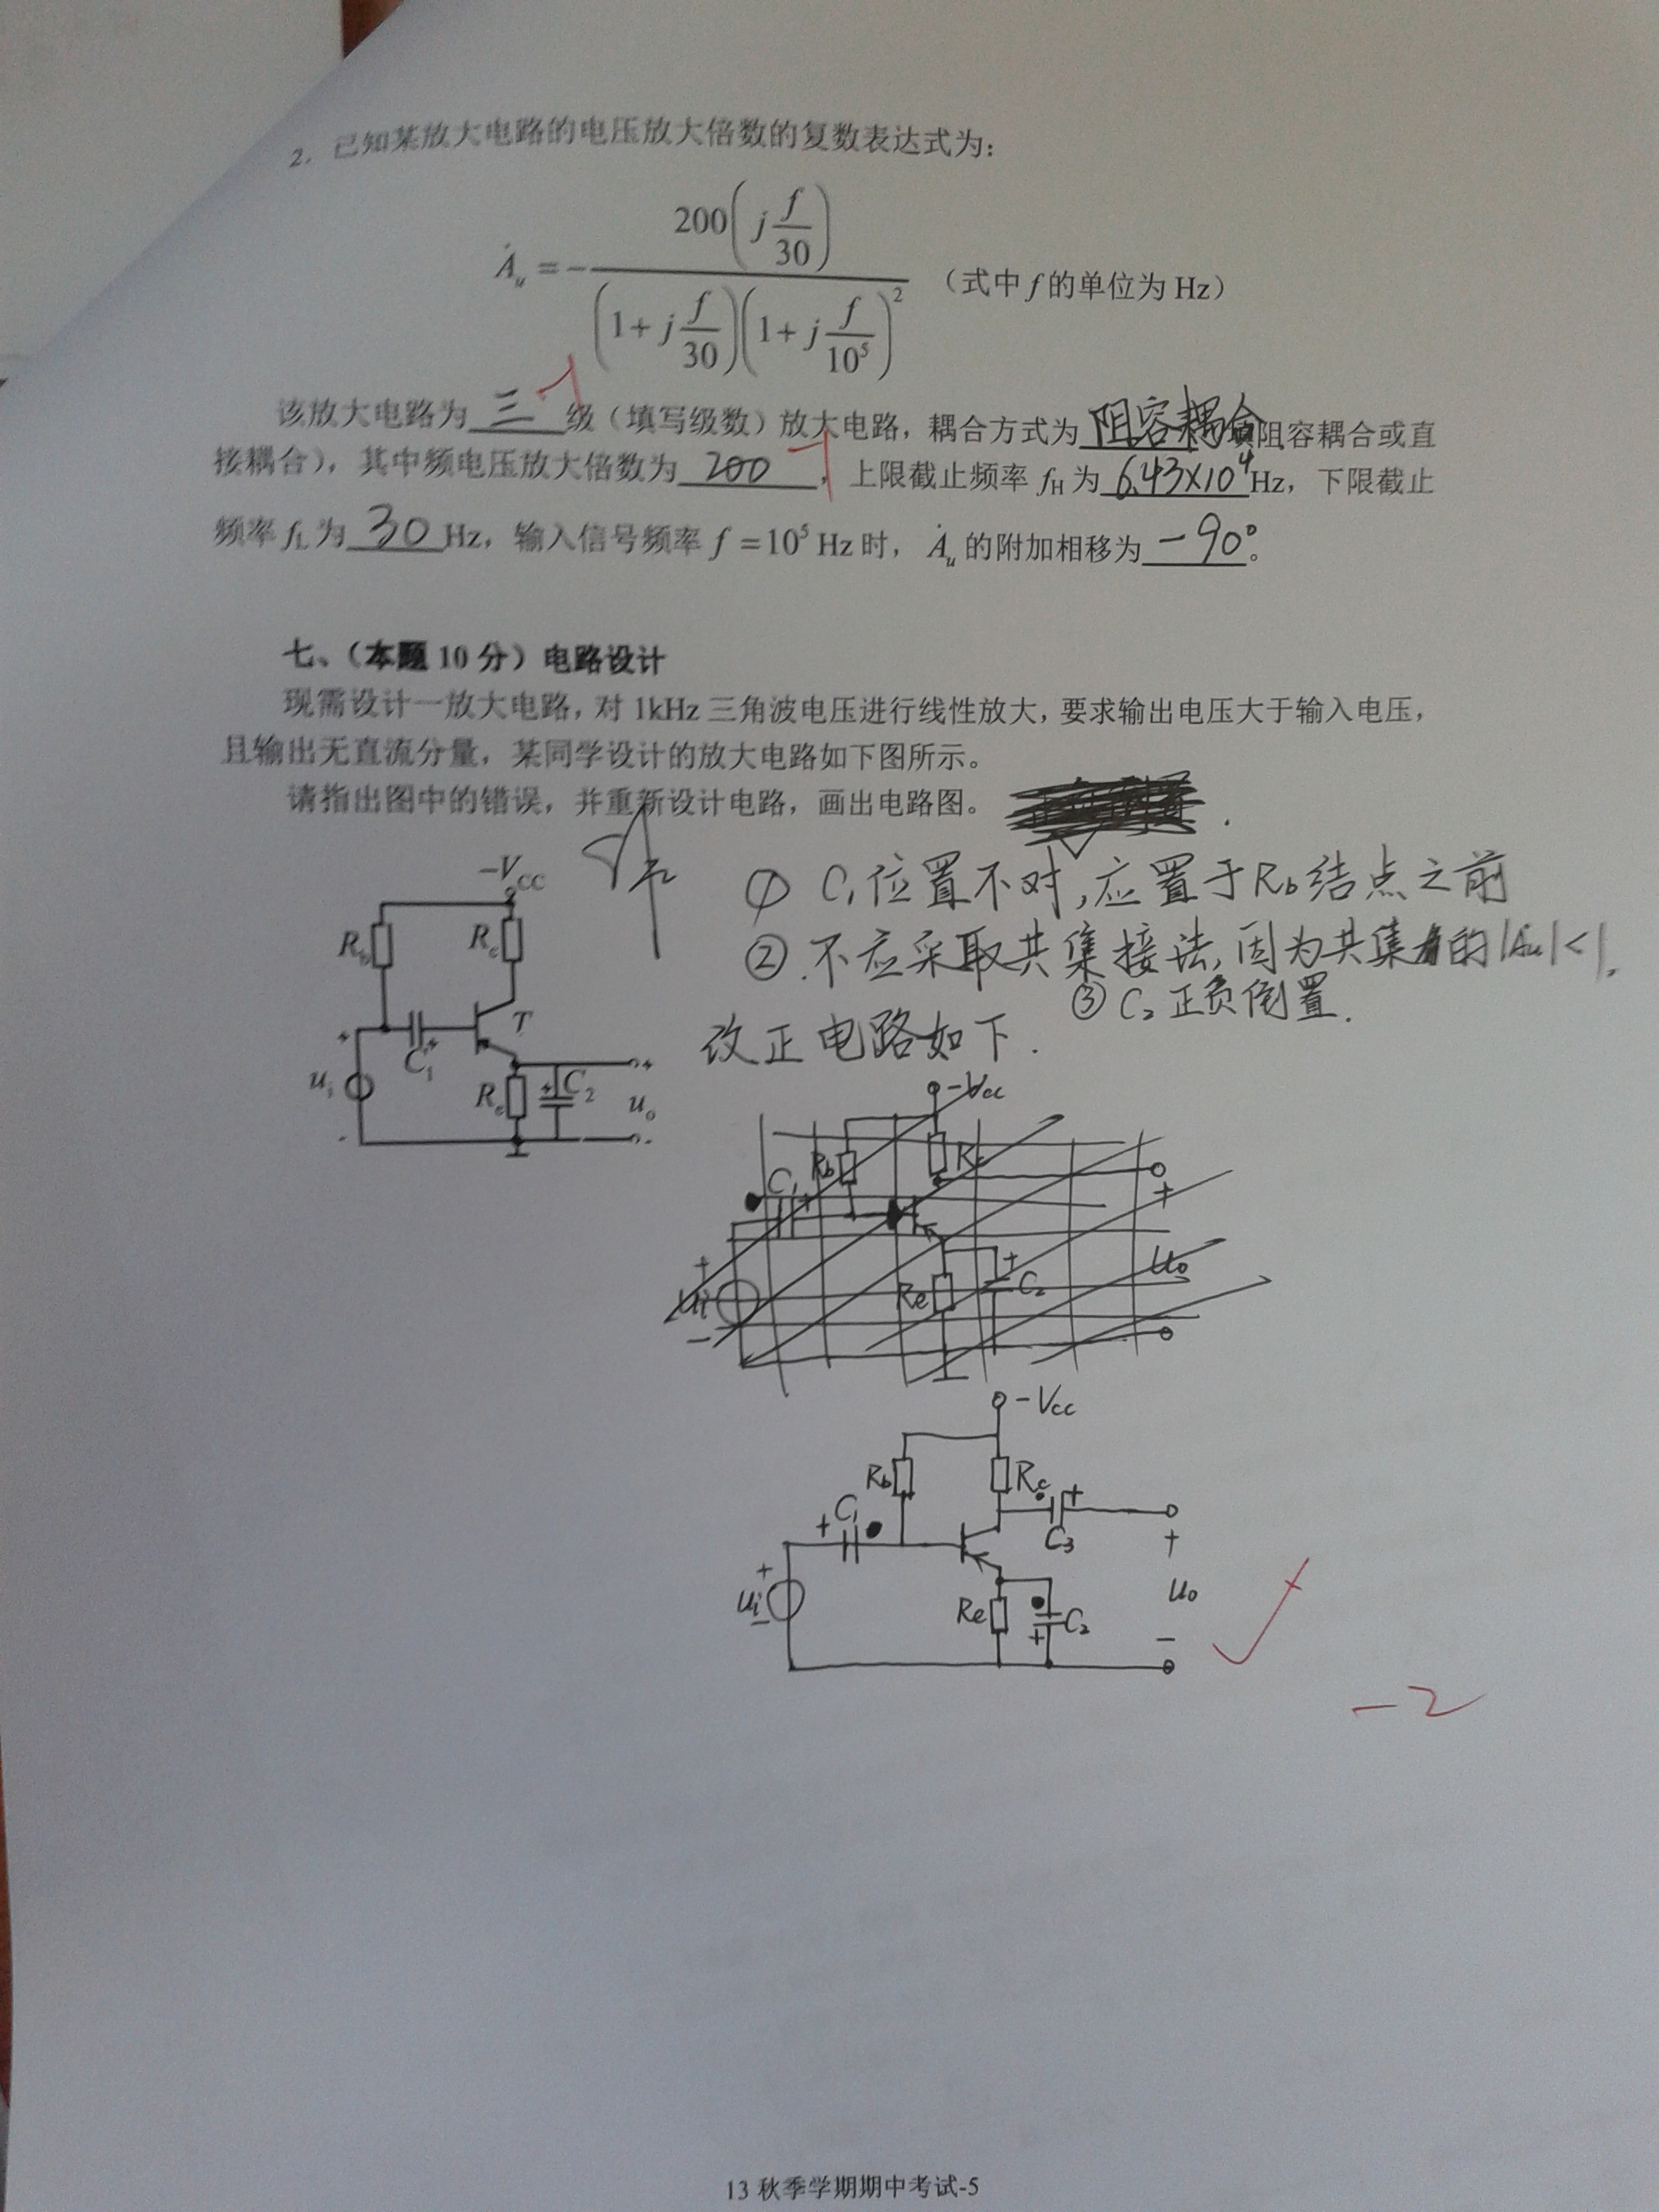 2. 已知某放大电路的电压放大倍数的复数表达式为：
Ȧu = − 200(j f/30) / (1+j f/30)(1+j f/10⁵)² （式中 f 的单位为 Hz）
该放大电路为 三 级（填写级数）放大电路，耦合方式为 阻容耦合 阻容耦合或直
接耦合），其中频电压放大倍数为 200 ，上限截止频率 fH 为 6.43×10⁴ Hz，下限截止
频率 fL 为 30 Hz，输入信号频率 f = 10⁵ Hz 时，Ȧu 的附加相移为 −90° 。
七、（本题 10 分）电路设计
现需设计一放大电路，对 1kHz 三角波电压进行线性放大，要求输出电压大于输入电压，
且输出无直流分量，某同学设计的放大电路如下图所示。
请指出图中的错误，并重新设计电路，画出电路图。
-VCC
Rb
Rc
C1
+
T
+
ui
-
Re
+
C2
+
uo
-
① C1位置不对，应置于Rb结点之前
② .不应采取共集接法，因为共集的|Au|<1,
③ C2正负倒置.
改正电路如下.
-Vcc
Rb
Rc
C1
+
+
ui
-
Re
C2
+
+
uo
-
-Vcc
Rb
Rc
+
C1
C3
+
+
ui
-
Re
+
C2
+
uo
-
-2
13 秋季学期期中考试-5